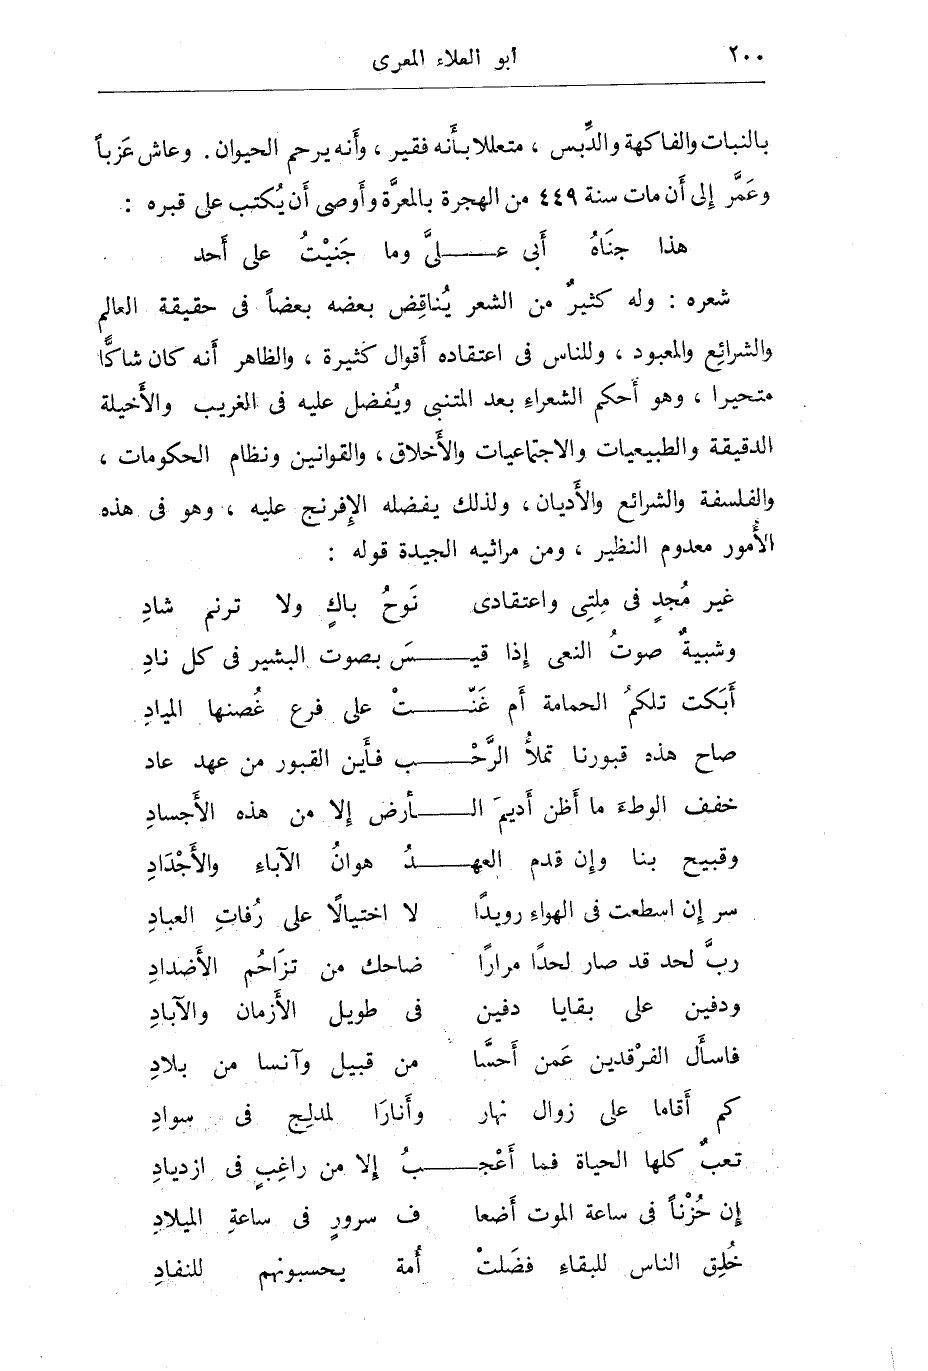 ٢٠٠ أبو العلاء المعرى
بالنبات والفاكهة والدِّبس ، متعللا بأَنه فقير ، وأَنه يرحم الحيوان . وعاش عَزباً
وعَمَّر إلى أَن مات سنة ٤٤٩ من الهجرة بالمعرَّة وأَوصى أَن يُكتب على قبره :
هذا جنَاهُ أَبى عــلىَّ وما جَنيْتُ على أَحد
شعره : وله كثيرٌ من الشعر يُناقِض بعضه بعضاً فى حقيقة العالم
والشرائع والمعبود ، وللناس فى اعتقاده أَقوال كثيرة ، والظاهر أَنه كان شاكًّا
متحيرا ، وهو أَحكم الشعراء بعد المتنبى ويُفضل عليه فى الغريب والأَخيلة
الدقيقة والطبيعيات والاجتماعيات والأَخلاق ، والقوانين ونظام الحكومات ،
والفلسفة والشرائع والأَديان ، ولذلك يفضله الإفرنج عليه ، وهو فى هذه
الأُمور معدوم النظير ، ومن مراثيه الجيدة قوله :
غير مُجدٍ فى مِلتِى واعتقادى نَوحُ باكٍ ولا ترنم شادِ
وشبيهٌ صوتُ النعى إذا قيــسَ بصوت البشير فى كل نادِ
أَبَكت تلكمُ الحمامة أَم غَنّــتْ على فرع غُصنها الميادِ
صاح هذه قبورنا تملأُ الرَّحْــب فأَين القبور من عهد عاد
خفف الوطءَ ما أَظن أَديمَ الــأَرض إلا من هذه الأَجسادِ
وقبيح بنا وإن قدم العهــدُ هوانُ الآباءِ والأَجْدَادِ
سر إن اسطعت فى الهواء رويدًا لا اختيالًا على رُفاتِ العبادِ
ربَّ لحد قد صار لحدًا مرارًا ضاحك من تزَاحُم الأَضدادِ
ودفين على بقايا دفين فى طويل الأَزمان والآبادِ
فاسأَل الفرْقدين عَمن أَحسَّا من قبيل وآنسا من بلادِ
كم أَقاما على زوال نهار وأَنارَا لمدلِج فى سوادِ
تعبٌ كلها الحياة فما أَعْجــبُ إلا من راغِبٍ فى ازديادِ
إن حُزْناً فى ساعة الموت أَضعا ف سرورٍ فى ساعةِ الميلادِ
خُلِق الناس للبقاءِ فضَلتْ أُمة يحسبونهم للنفادِ